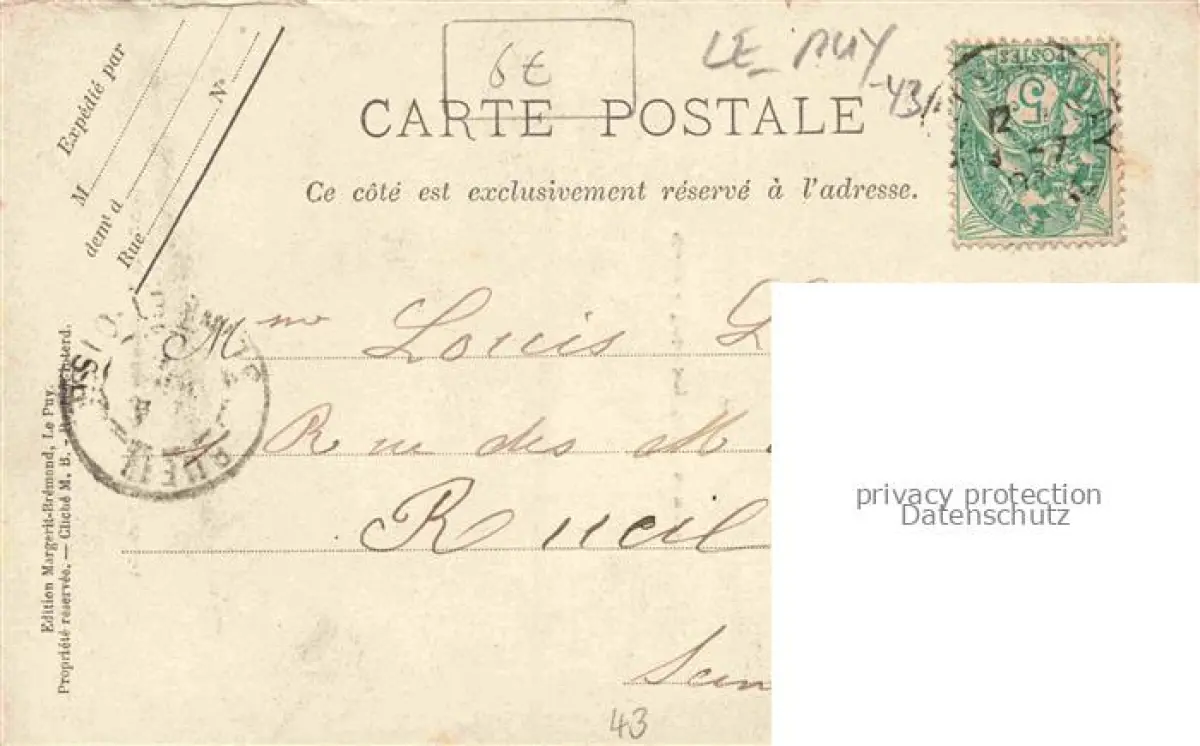 6€
LE PUY
-43
CARTE POSTALE
Ce côté est exclusivement réservé à l'adresse.
Expédié par
M
demt à
Rue
No
POSTES
5
12
Mme Louis
Rue des M
Rueil
Sein
RUEIL
Edition Margerit-Brémond, Le Puy.
Propriété réservée. — Cliché M. B. -
43
privacy protection
Datenschutz